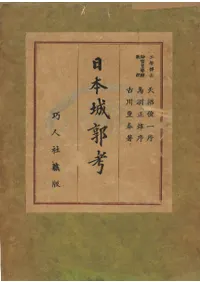 大類伸一序
鳥羽正雄序
古川重春著
日本城郭考
巧人社藏版